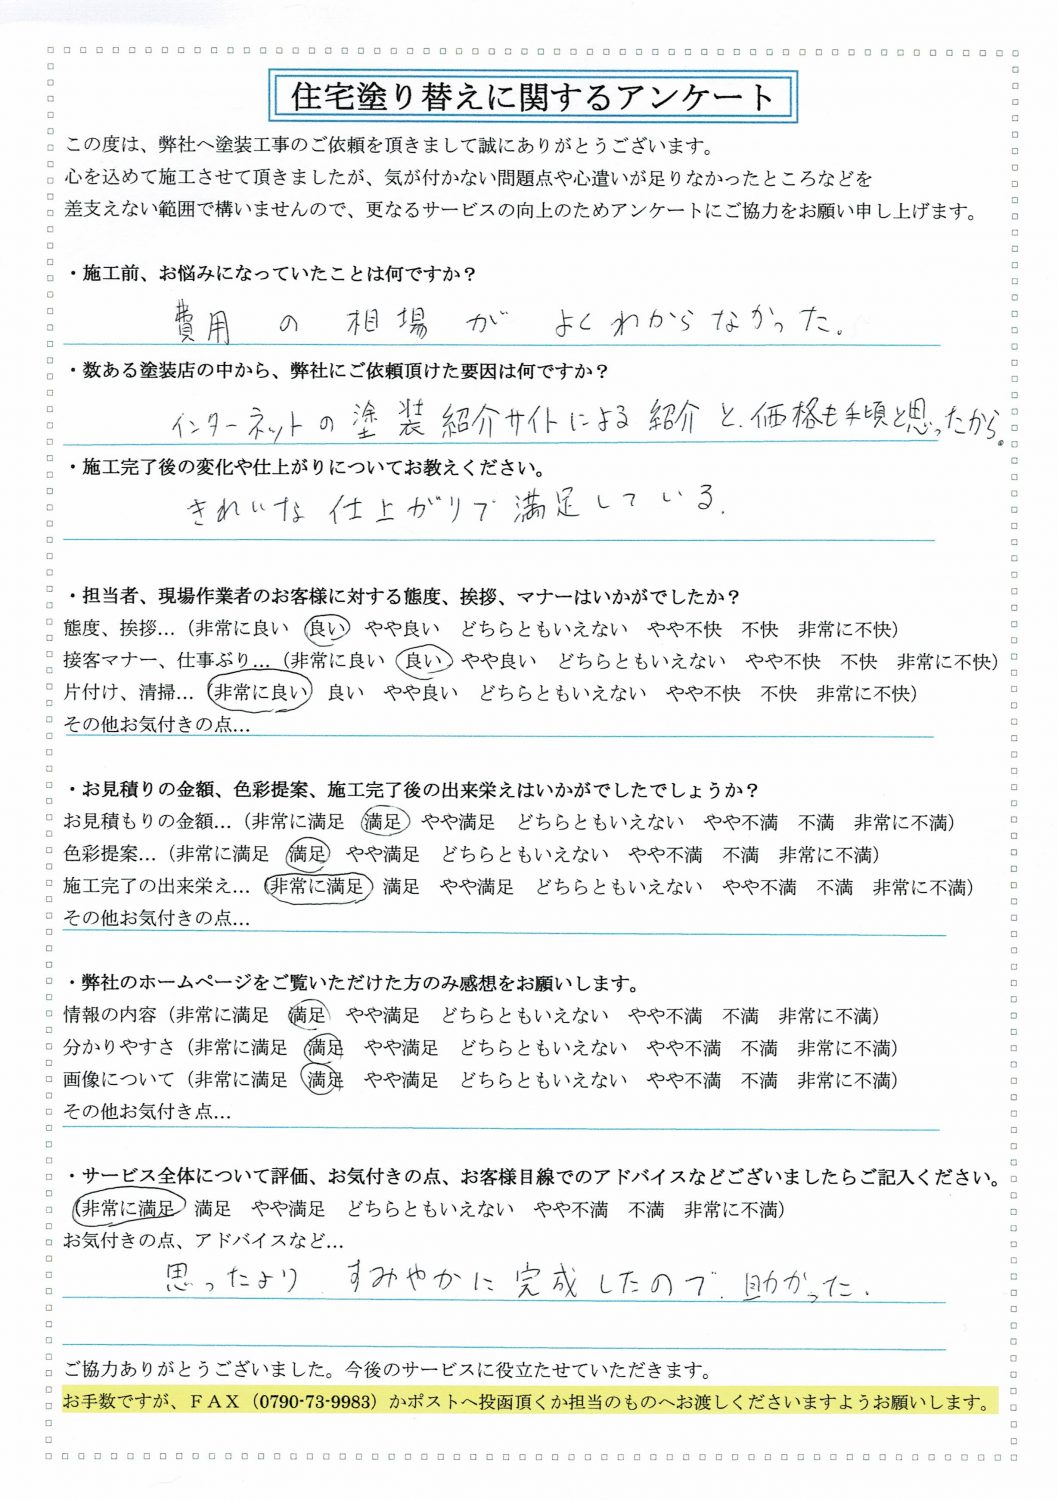 住宅塗り替えに関するアンケート
この度は、弊社へ塗装工事のご依頼を頂きまして誠にありがとうございます。
心を込めて施工させて頂きましたが、気が付かない問題点や心遣いが足りなかったところなどを
差支えない範囲で構いませんので、更なるサービスの向上のためアンケートにご協力をお願い申し上げます。
・施工前、お悩みになっていたことは何ですか？
費用の相場がよくわからなかった。
・数ある塗装店の中から、弊社にご依頼頂けた要因は何ですか？
インターネットの塗装紹介サイトによる紹介と、価格も手頃と思ったから。
・施工完了後の変化や仕上がりについてお教えください。
きれいな仕上がりで満足している。
・担当者、現場作業者のお客様に対する態度、挨拶、マナーはいかがでしたか？
態度、挨拶…（非常に良い　良い　やや良い　どちらともいえない　やや不快　不快　非常に不快）
接客マナー、仕事ぶり…（非常に良い　良い　やや良い　どちらともいえない　やや不快　不快　非常に不快）
片付け、清掃…（非常に良い　良い　やや良い　どちらともいえない　やや不快　不快　非常に不快）
その他お気付きの点…
・お見積りの金額、色彩提案、施工完了後の出来栄えはいかがでしたでしょうか？
お見積もりの金額…（非常に満足　満足　やや満足　どちらともいえない　やや不満　不満　非常に不満）
色彩提案…（非常に満足　満足　やや満足　どちらともいえない　やや不満　不満　非常に不満）
施工完了の出来栄え…（非常に満足　満足　やや満足　どちらともいえない　やや不満　不満　非常に不満）
その他お気付きの点…
・弊社のホームページをご覧いただけた方のみ感想をお願いします。
情報の内容（非常に満足　満足　やや満足　どちらともいえない　やや不満　不満　非常に不満）
分かりやすさ（非常に満足　満足　やや満足　どちらともいえない　やや不満　不満　非常に不満）
画像について（非常に満足　満足　やや満足　どちらともいえない　やや不満　不満　非常に不満）
その他お気付き点…
・サービス全体について評価、お気付きの点、お客様目線でのアドバイスなどございましたらご記入ください。
（非常に満足　満足　やや満足　どちらともいえない　やや不満　不満　非常に不満）
お気付きの点、アドバイスなど…
思ったより すみやかに完成したので、助かった。
ご協力ありがとうございました。今後のサービスに役立たせていただきます。
お手数ですが、ＦＡＸ（0790-73-9983）かポストへ投函頂くか担当のものへお渡しくださいますようお願いします。